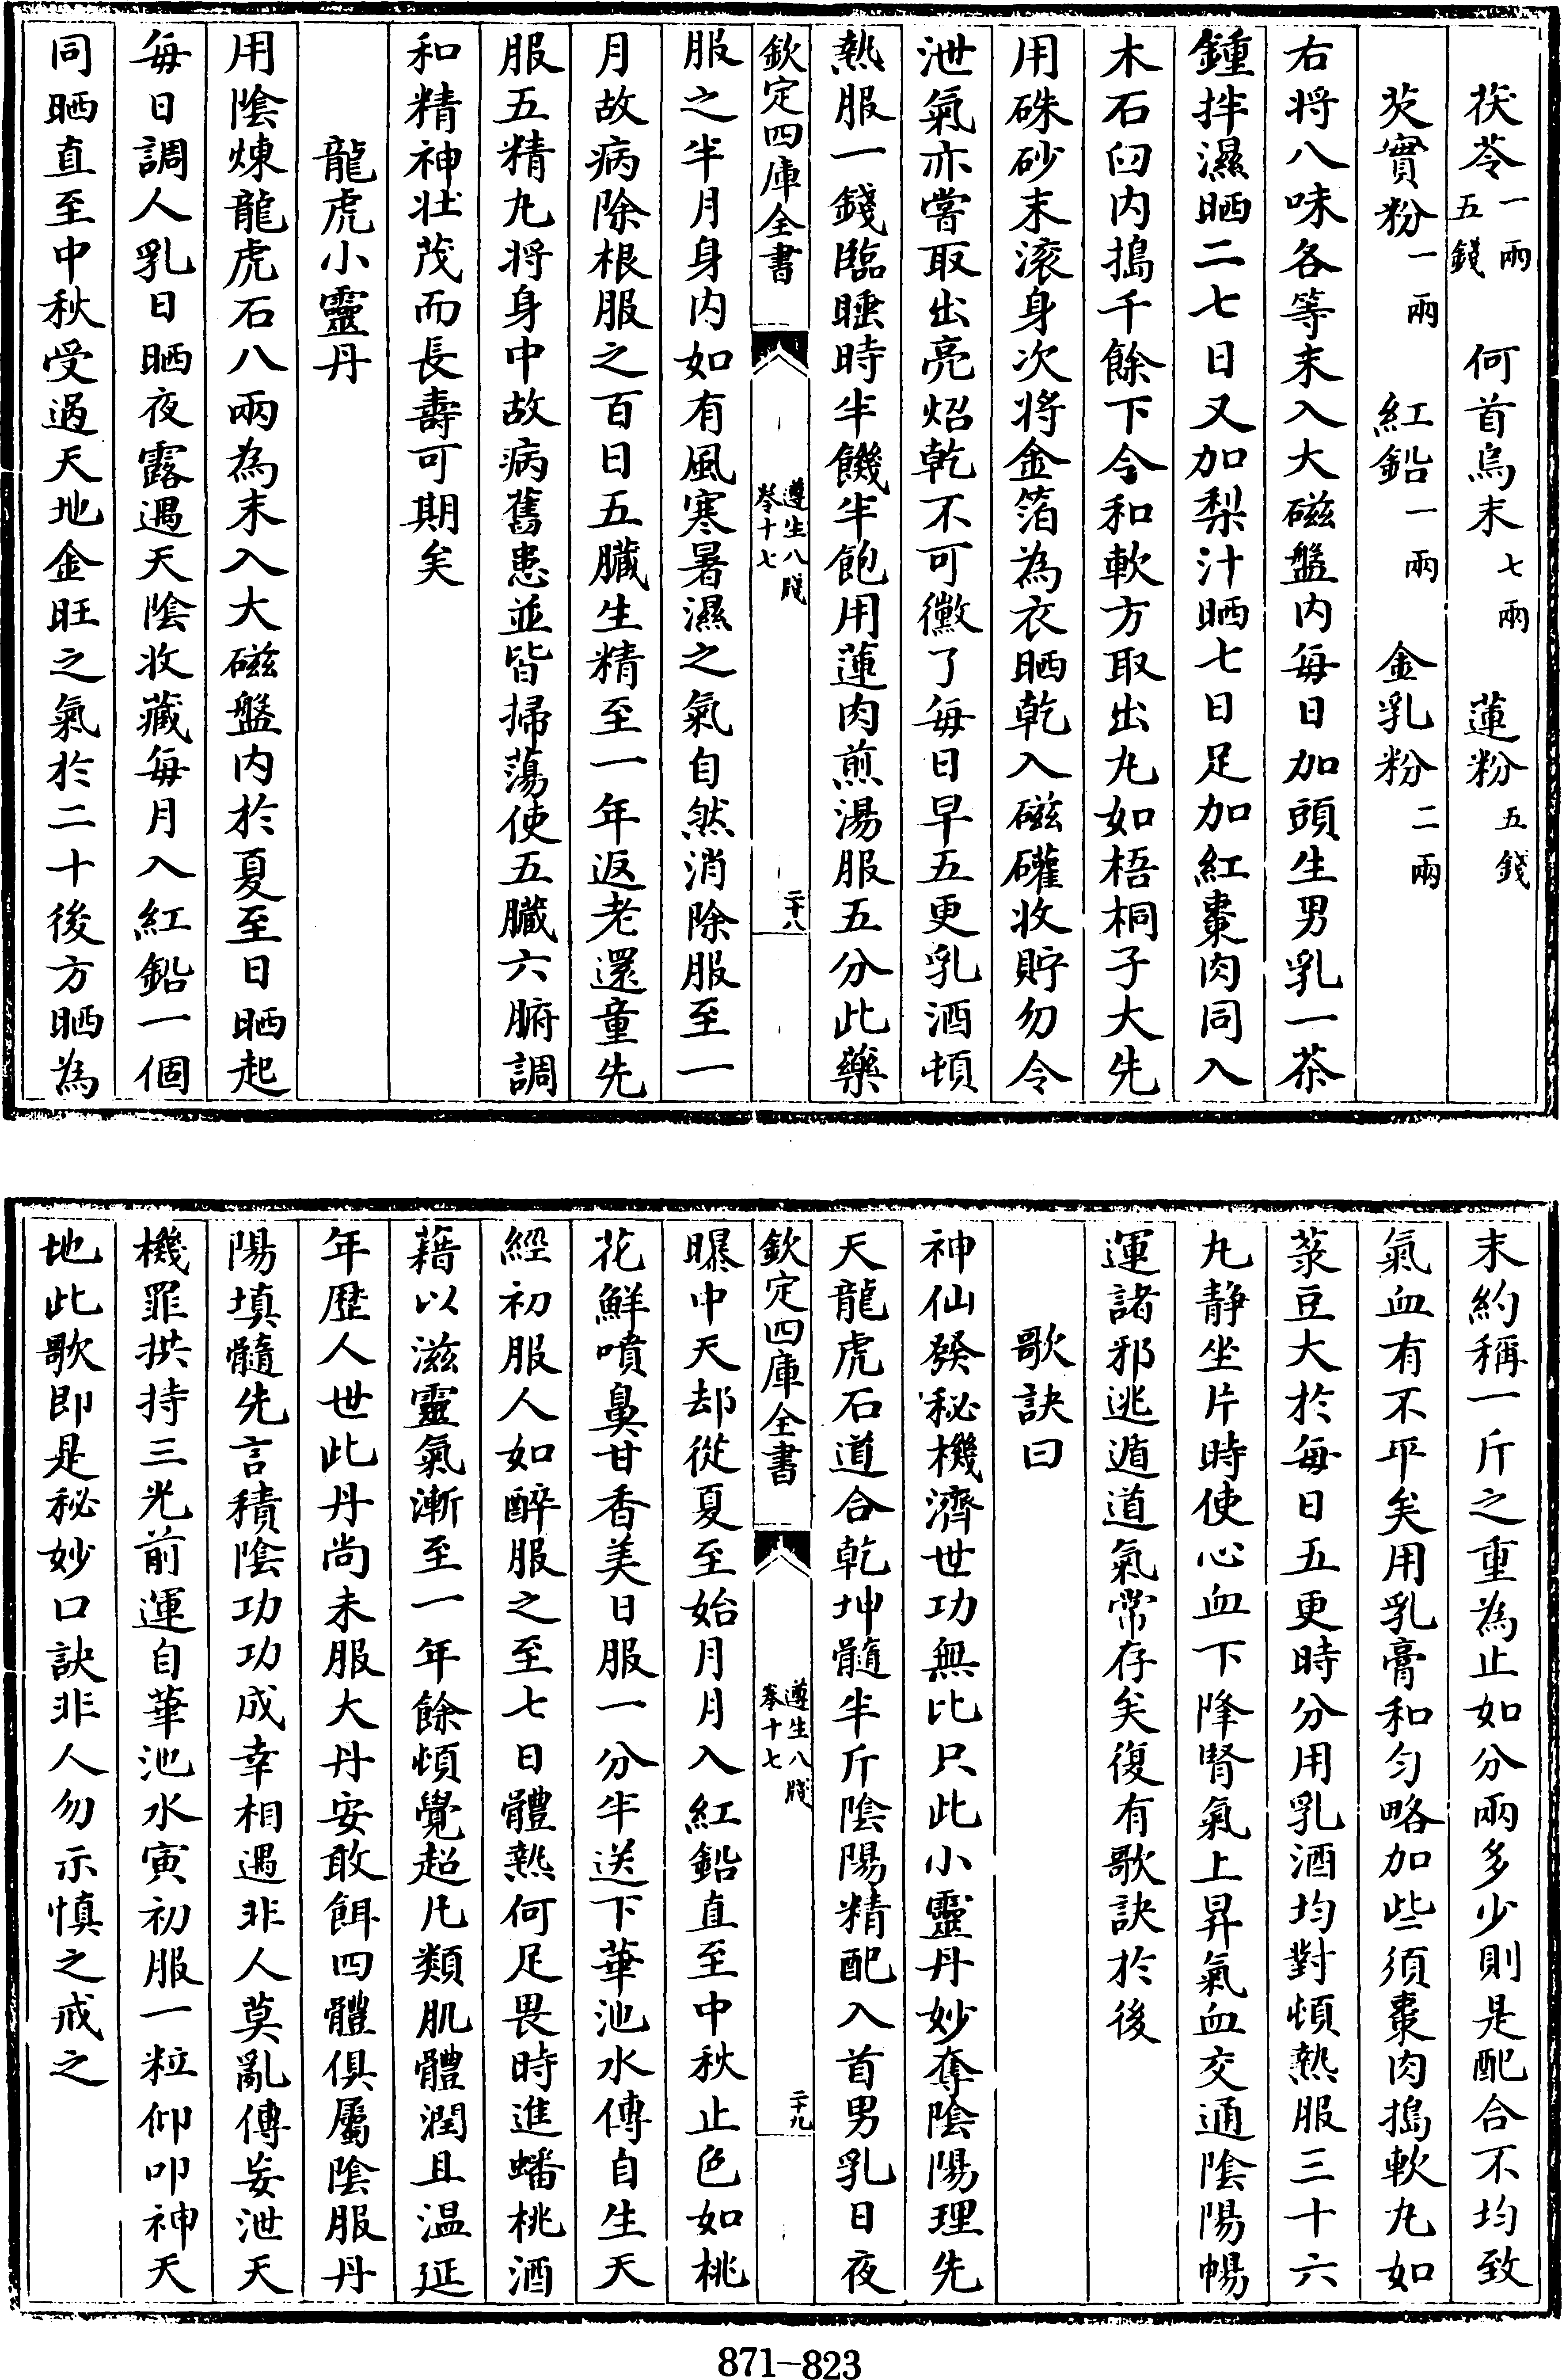 茯苓一兩五錢　何首烏末七兩　蓮粉五錢
芡實粉一兩　紅鉛一兩　金乳粉二兩
右将八味各等末入大磁盤内每日加頭生男乳一茶
鍾拌濕晒二七日又加梨汁晒七日足加紅棗肉同入
木石臼内搗千餘下令和軟方取出丸如梧桐子大先
用硃砂末滚身次将金箔為衣晒乾入磁礶收貯勿令
泄氣亦嘗取出亮炤乾不可黴了每日早五更乳酒頓
熱服一錢臨睡時半饑半飽用蓮肉煎湯服五分此藥
欽定四庫全書　遵生八牋卷十七　二十八
服之半月身内如有風寒暑濕之氣自然消除服至一
月故病除根服之百日五臟生精至一年返老還童先
服五精丸将身中故病舊患並皆掃蕩使五臟六腑調
和精神壯茂而長壽可期矣
龍虎小靈丹
用陰煉龍虎石八兩為末入大磁盤内於夏至日晒起
每日調人乳日晒夜露遇天陰收藏每月入紅鉛一個
同晒直至中秋受過天地金旺之氣於二十後方晒為
末約稱一斤之重為止如分兩多少則是配合不均致
氣血有不平矣用乳膏和匀略加些須棗肉搗軟丸如
菉豆大於每日五更時分用乳酒均對頓熱服三十六
丸静坐片時使心血下降腎氣上昇氣血交通陰陽暢
運諸邪逃遁道氣常存矣復有歌訣於後
歌訣曰
神仙發秘機濟世功無比只此小靈丹妙奪陰陽理先
天龍虎石道合乾坤髓半斤陰陽精配入首男乳日夜
欽定四庫全書　遵生八牋卷十七　二十九
曝中天却從夏至始月月入紅鉛直至中秋止色如桃
花鮮噴鼻甘香美日服一分半送下華池水傳自生天
經初服人如醉服之至七日體熱何足畏時進蟠桃酒
藉以滋靈氣漸至一年餘頓覺超凡類肌體潤且温延
年歴人世此丹尚未服大丹安敢餌四體俱屬陰服丹
陽填髓先言積陰功功成幸相遇非人莫亂傳妄泄天
機罪拱持三光前運自華池水寅初服一粒仰叩神天
地此歌即是秘妙口訣非人勿示慎之戒之
871-823